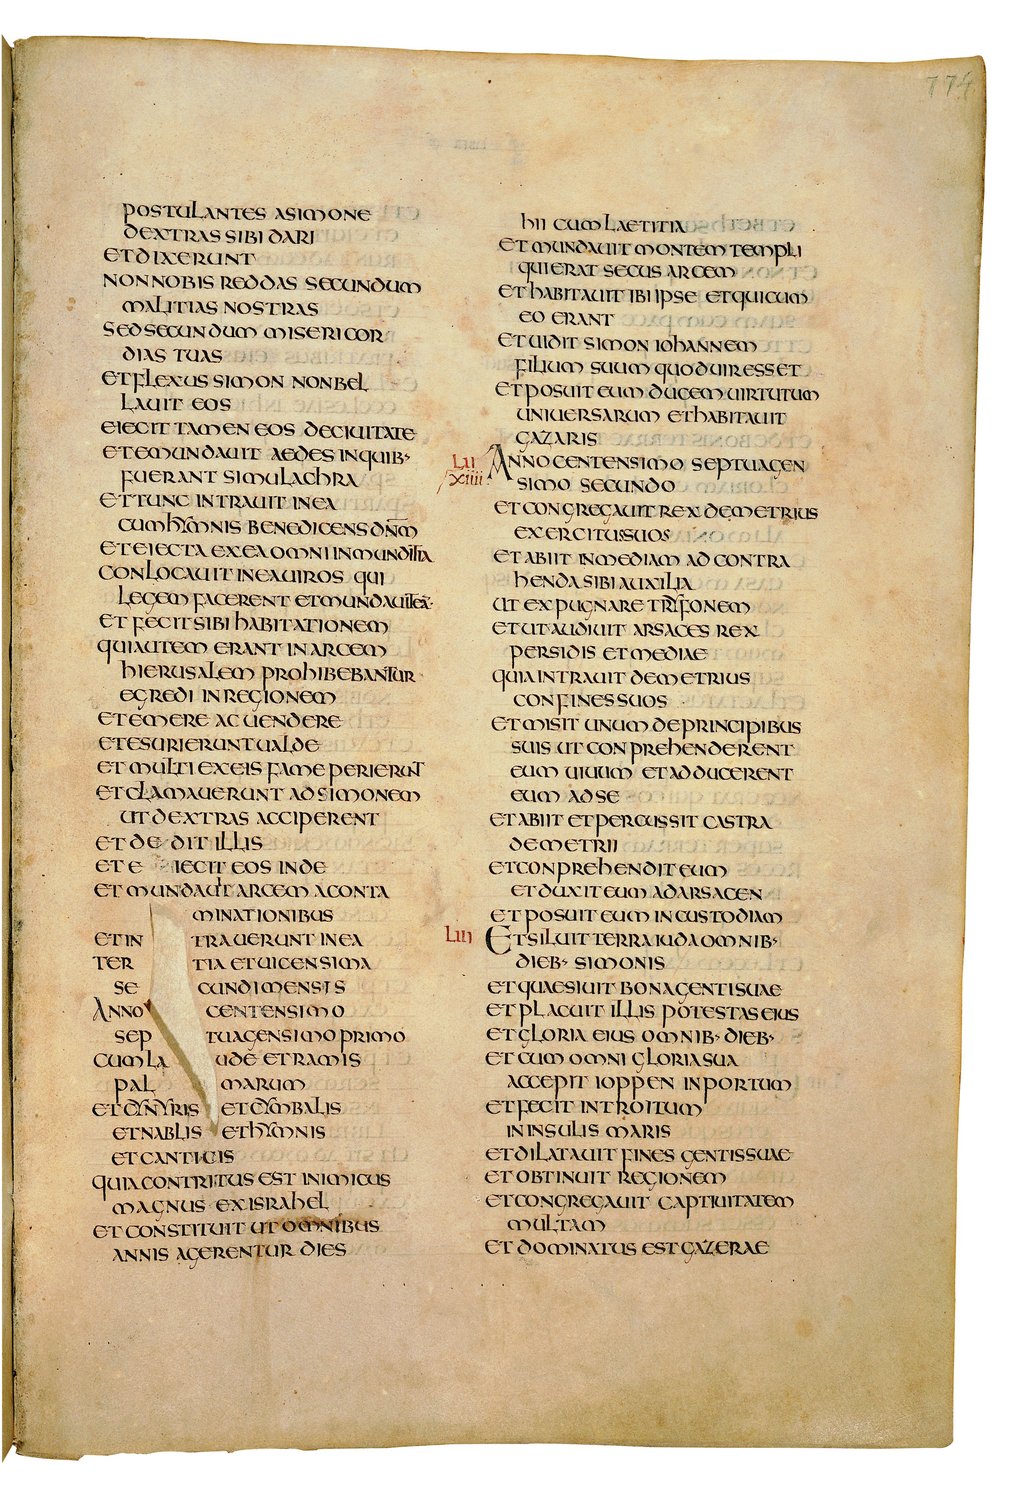 774
POSTULANTES ASIMONE
DEXTRAS SIBI DARI
ET DIXERUNT
NON NOBIS REDDAS SECUNDUM
MALITIAS NOSTRAS
SED SECUNDUM MISERICOR
DIAS TUAS
ET FLEXUS SIMON NON BEL
LAUIT EOS
EIECIT TAMEN EOS DECIUITATE
ET EMUNDAUIT AEDES INQUIB·
FUERANT SIMULACHRA
ET TUNC INTRAUIT INEA
CUM HYMNIS BENEDICENS DN̄M
ET EIECTA EXEA OMNI INMUNDITIA
CONLOCAUIT INEA UIROS QUI
LEGEM FACERENT ET MUNDAUIT EĀ·
ET FECIT SIBI HABITATIONEM
QUI AUTEM ERANT IN ARCEM
HIERUSALEM PROHIBEBANTUR
EGREDI IN REGIONEM
ET EMERE AC UENDERE
ET ESURIERUNT UALDE
ET MULTI EXEIS FAME PERIERUNT
ET CLAMAUERUNT AD SIMONEM
UT DEXTRAS ACCIPERENT
ET DEDIT ILLIS
ET EIECIT EOS INDE
ET MUNDAUIT ARCEM A CONTA
MINATIONIBUS
ET INTRAUERUNT IN EA
TERTIA ET UICENSIMA
SECUNDI MENSIS
ANNO CENTENSIMO
SEPTUAGENSIMO PRIMO
CUM LAUDE ET RAMIS
PALMARUM
ET CYNYRIS ET CYMBALIS
ET NABLIS ET HYMNIS
ET CANTICIS
QUIA CONTRITUS EST INIMICUS
MAGNUS EX ISRAHEL
ET CONSTITUIT UT OMNIBUS
ANNIS AGERENTUR DIES
HII CUM LAETITIA
ET MUNDAUIT MONTEM TEMPLI
QUI ERAT SECUS ARCEM
ET HABITAUIT IBI IPSE ET QUI CUM
EO ERANT
ET UIDIT SIMON IOHANNEM
FILIUM SUUM QUOD UIR ESSET
ET POSUIT EUM DUCEM UIRTUTUM
UNIUERSARUM ET HABITAUIT
GAZARIS
LII
XIIII
ANNO CENTENSIMO SEPTUAGEN
SIMO SECUNDO
ET CONGREGAUIT REX DEMETRIUS
EXERCITUS SUOS
ET ABIIT IN MEDIAM AD CONTRA
HENDA SIBI AUXILIA
UT EXPUGNARE TRYFONEM
ET UT AUDIUIT ARSACES REX
PERSIDIS ET MEDIAE
QUIA INTRAUIT DEMETRIUS
CONFINES SUOS
ET MISIT UNUM DE PRINCIPIBUS
SUIS UT CONPREHENDERENT
EUM UIUUM ET ADDUCERENT
EUM AD SE
ET ABIIT ET PERCUSSIT CASTRA
DEMETRII
ET CONPREHENDIT EUM
ET DUXIT EUM AD ARSACEN
ET POSUIT EUM IN CUSTODIAM
LIII
ET SILUIT TERRA IUDA OMNIB·
DIEB· SIMONIS
ET QUAESIUIT BONA GENTI SUAE
ET PLACUIT ILLIS POTESTAS EIUS
ET GLORIA EIUS OMNIB· DIEB·
ET CUM OMNI GLORIA SUA
ACCEPIT IOPPEN IN PORTUM
ET FECIT INTROITUM
IN INSULIS MARIS
ET DILATAUIT FINES GENTIS SUAE
ET OBTINUIT REGIONEM
ET CONGREGAUIT CAPTIUITATEM
MULTAM
ET DOMINATUS EST GAZERAE